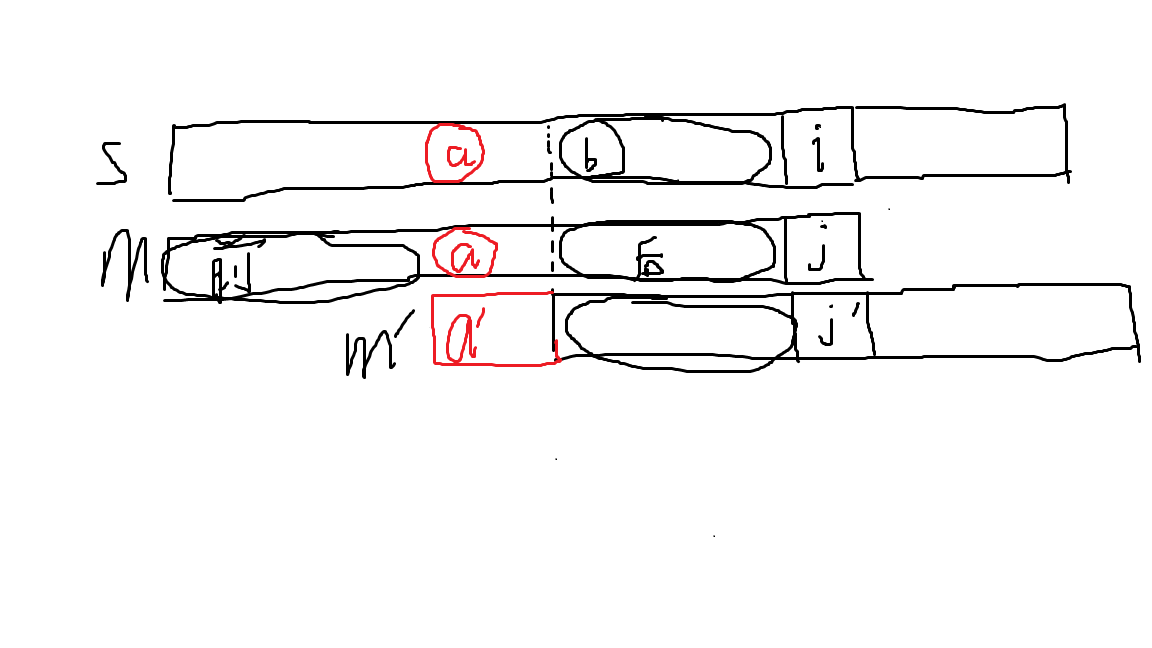 s a b i
m 前 a 后 j
m' a' j'